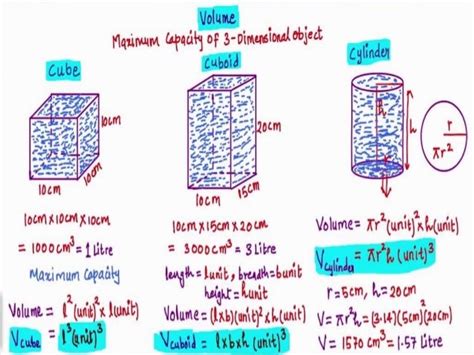 Volume
Maximum Capacity of 3-Dimensional Object
Cube
10cm
10cm
10cm
10cm x 10cm x 10cm
= 1000cm³ = 1 Litre
Maximum Capacity
Volume = l²(unit)² x l(unit)
V cube = l³(unit)³
Cuboid
20cm
15cm
10cm
10cm x 15cm x 20cm
= 3000cm³ = 3 Litre
length = l unit, breadth = b unit
height = h unit
Volume = (l x b)(unit)² x h(unit)
V cuboid = l x b x h (unit)³
Cylinder
h
h
r
πr²
Volume = πr²(unit)² x h(unit)
V cylinder = πr²h (unit)³
r = 5cm, h = 20cm
V = πr²h = (3.14)(5cm)²(20cm)
V = 1570 cm³ = 1.57 Litre